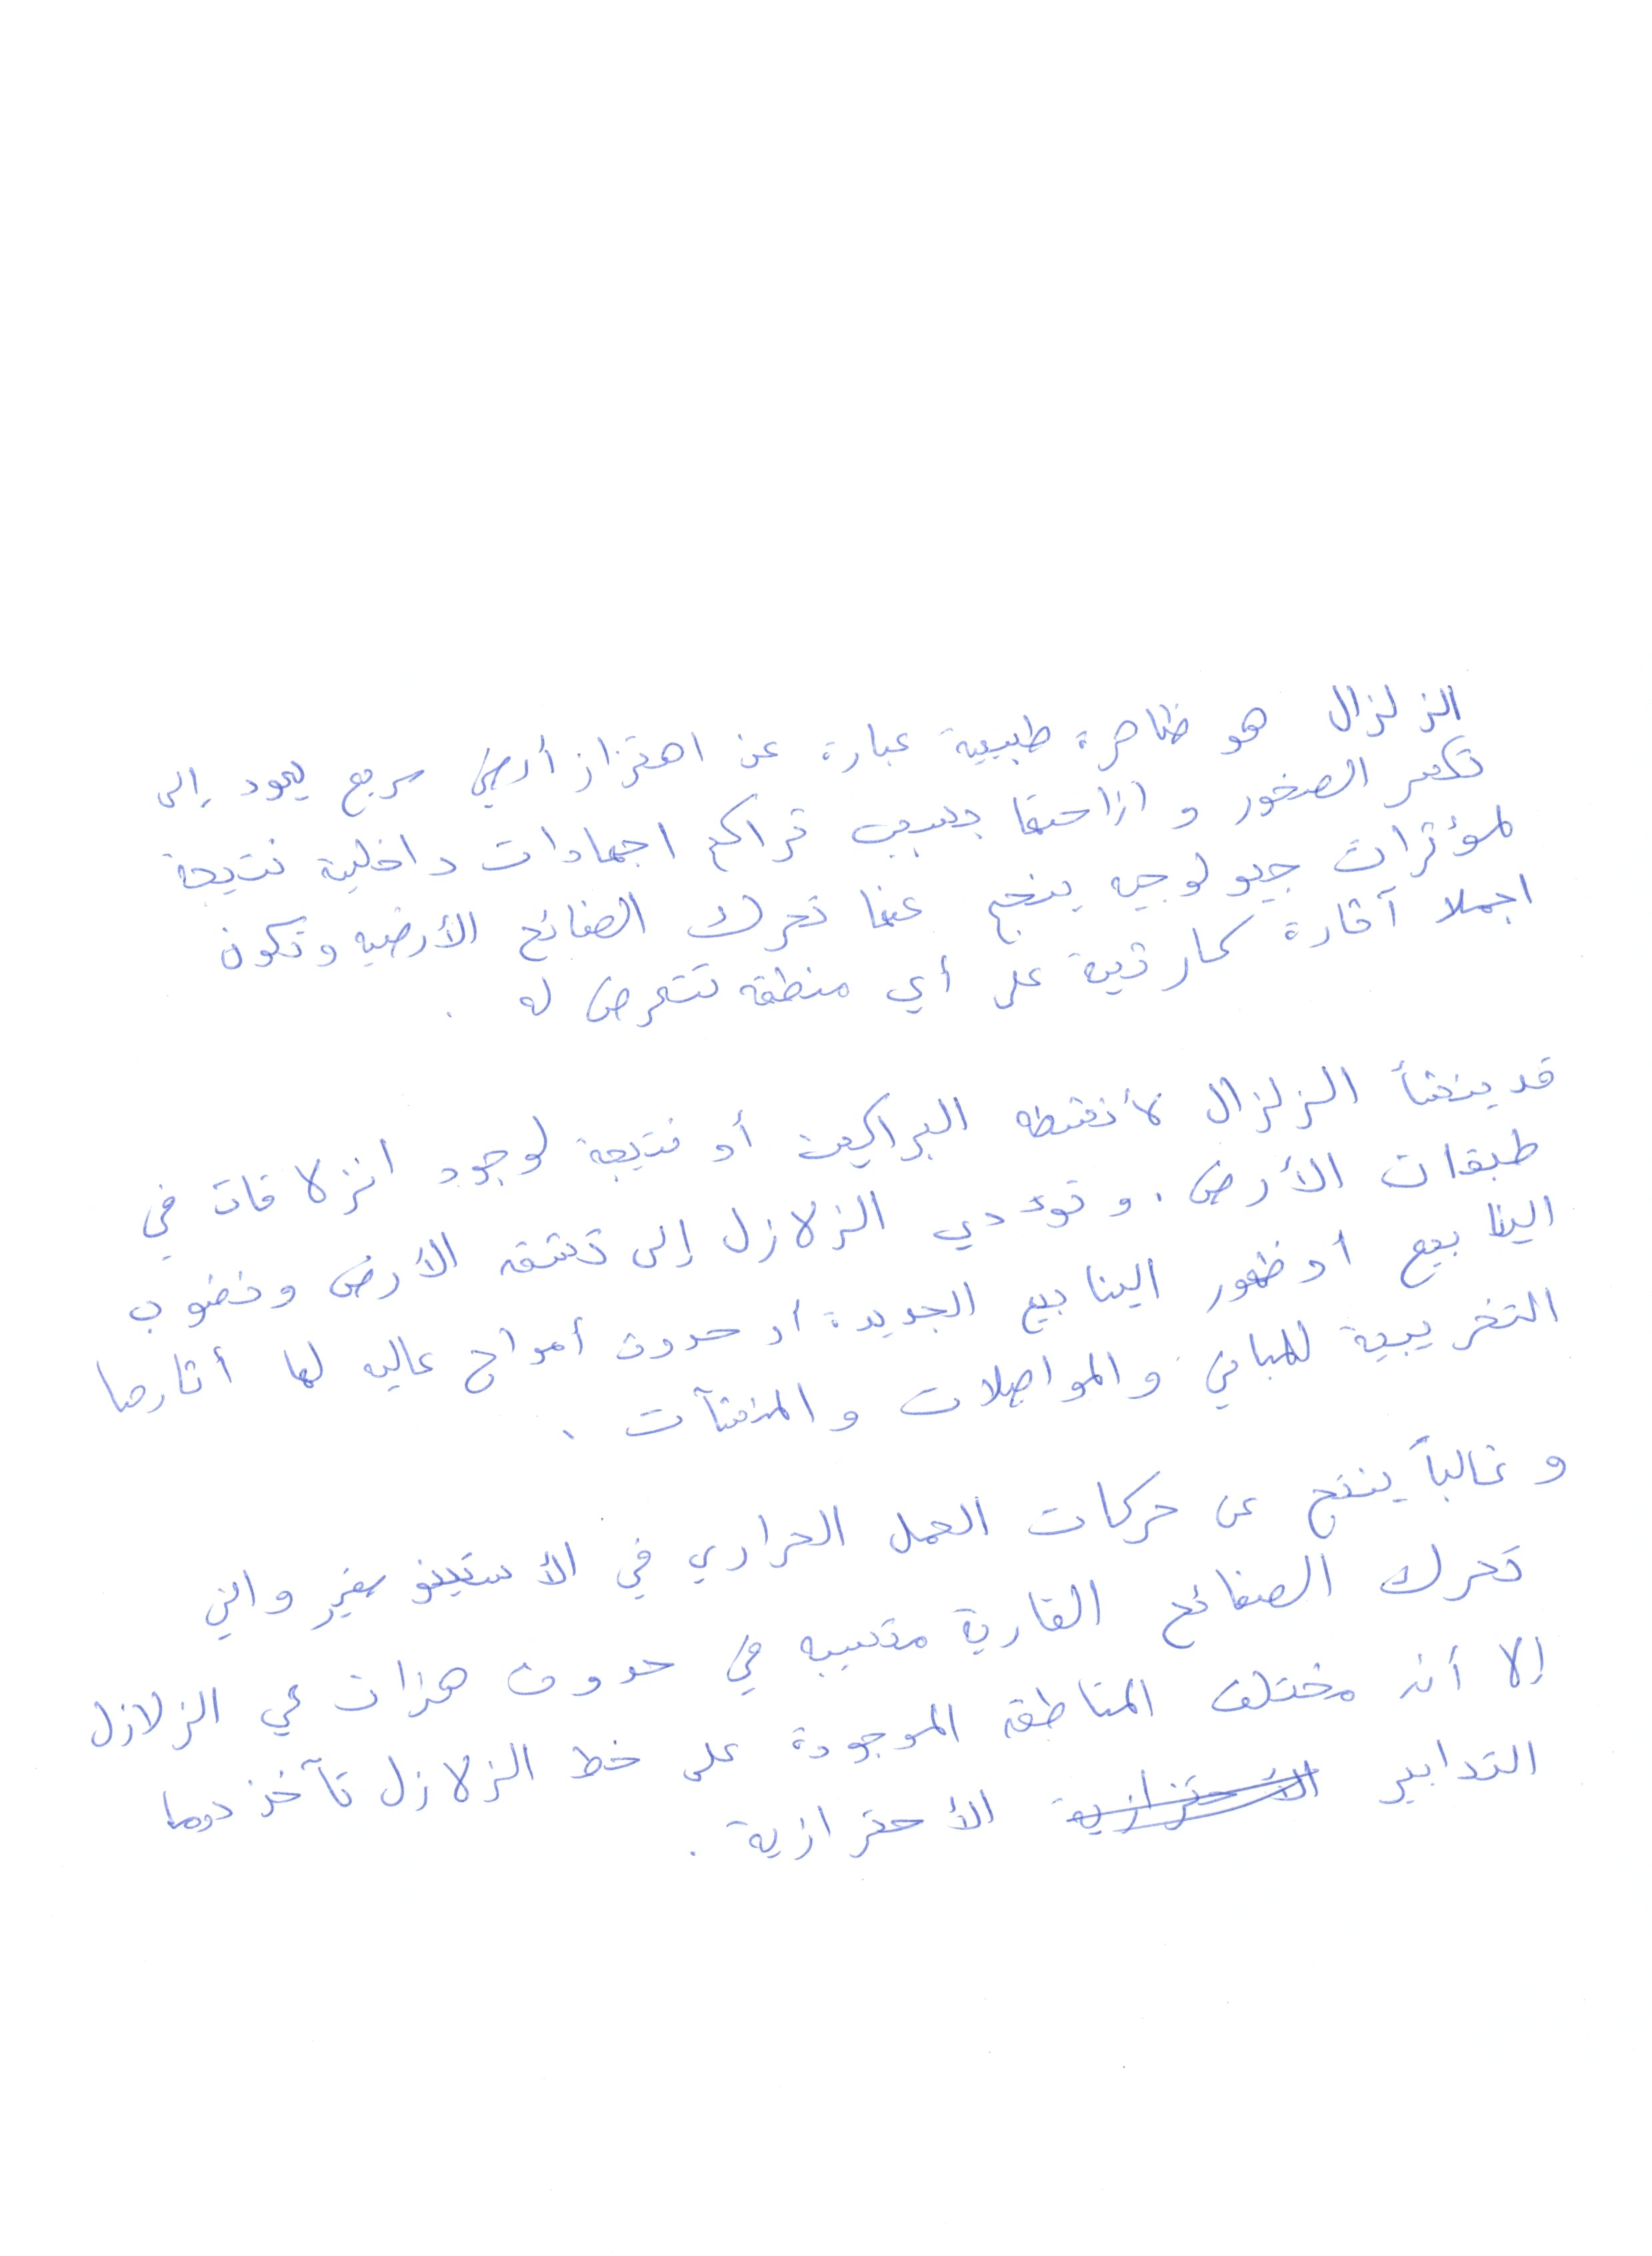 الزلزال هو ظاهرة طبيعية عبارة عن اهتزاز أرضي سريع يعود إلى
تكسر الصخور و ازاحتها بسبب تراكم اجهادات داخلية نتيجة
لمؤثرات جيولوجيه ينجم عنها تحرك الصفائح الأرضيه وتكون
اجملا آثارة كارثية على أي منطقه تتعرض له .
قد ينشأ الزلزال لأنشطه البراكين أو نتيجة لوجود انزلاقات في
طبقات الأرض . و تؤدي الزلازل إلى تشقق الأرض ونضوب
الينابيع أو ظهور الينابيع الجديدة أو حدوث أمواج عاليه لها أثارها
التخريبية للمباني والمواصلات و المنشآت .
و غالباً ينتج عن حركات الحمل الحراري في الأستينوسفير والتي
تحرك الصفائح القارية متسببه في حدوث هزات هي الزلازل
إلا أن مختلف المناطق الموجودة على خط الزلازل تآخذ دوما
التدابير الأحترازية الأحترازية .